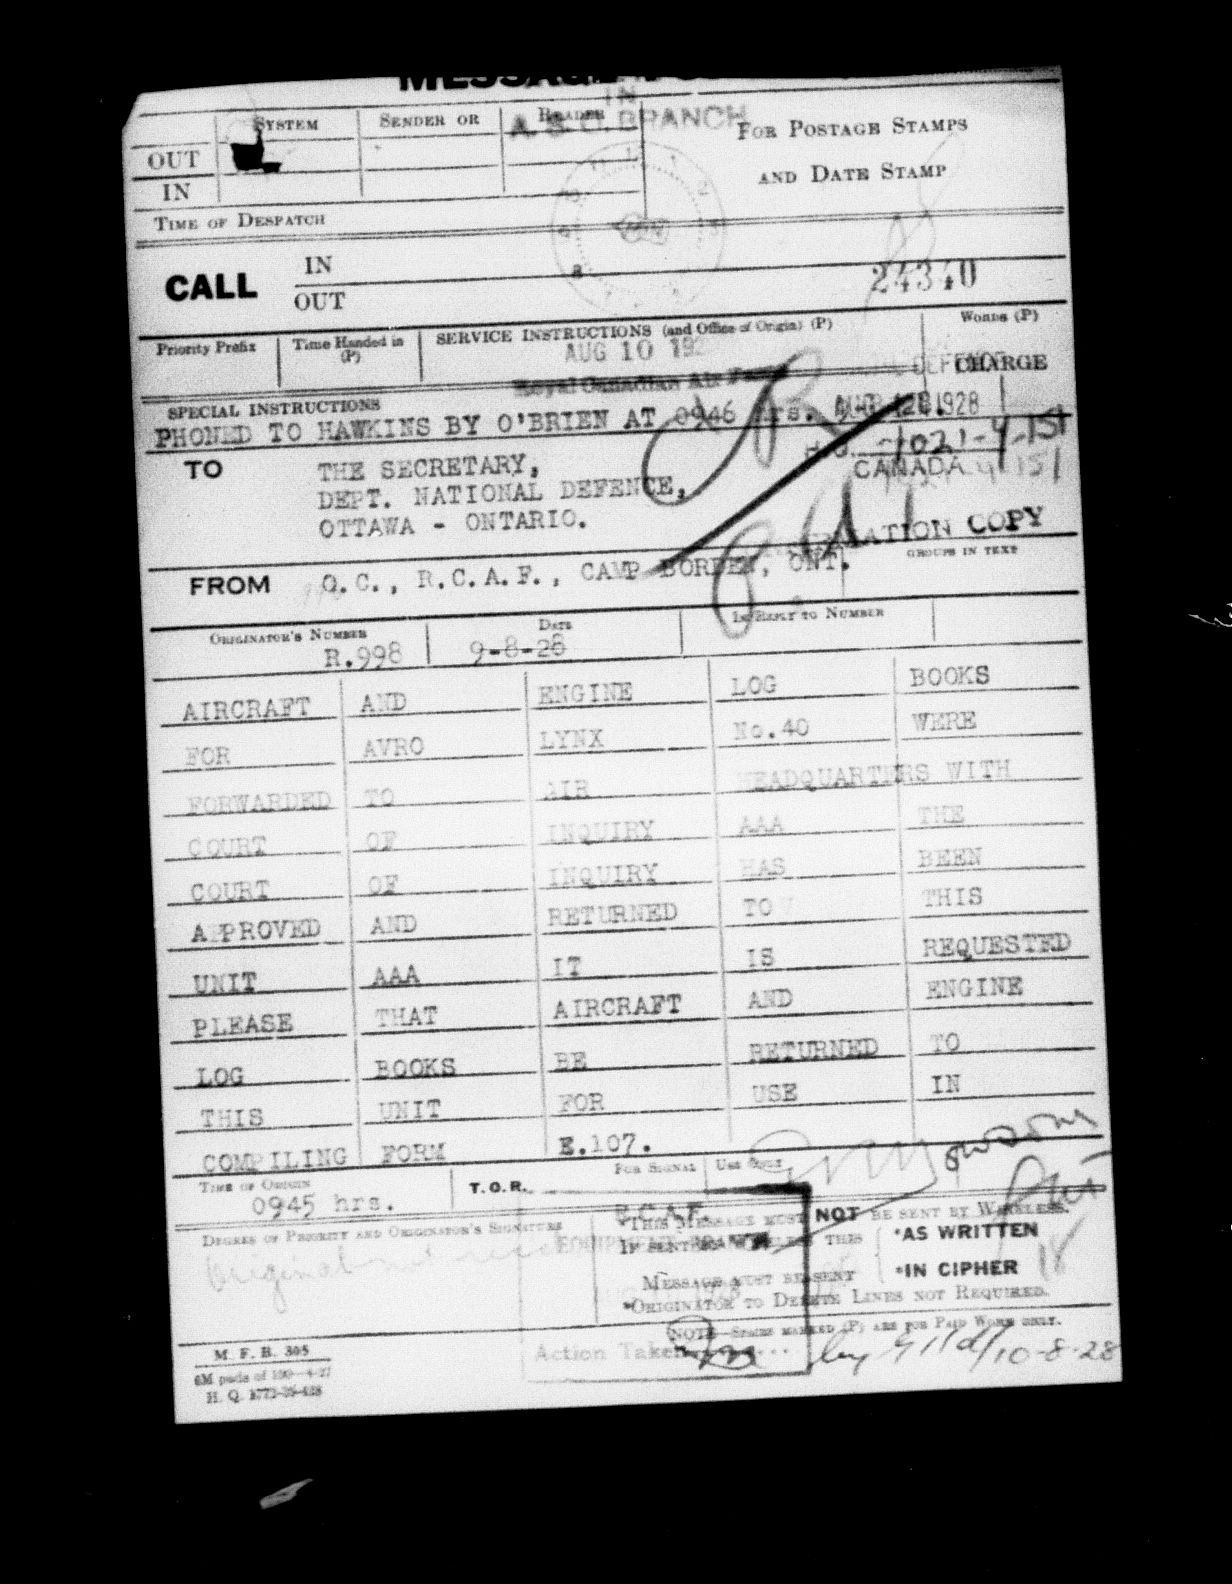 IN
A. S. O. BRANCH
SYSTEM SENDER OR READER
FOR POSTAGE STAMPS
AND DATE STAMP
OUT
IN
TIME OF DESPATCH
CALL IN
OUT
24340
Priority Prefix Time Handed in (P) SERVICE INSTRUCTIONS (and Office of Origin) (P) WORDS (P)
AUG 10
CHARGE
Royal Canadian Air Force
SPECIAL INSTRUCTIONS
PHONED TO HAWKINS BY O'BRIEN AT 0946 hrs.
1021-4-151
CANADA
TO THE SECRETARY,
DEPT. NATIONAL DEFENCE,
OTTAWA - ONTARIO.
COPY
GROUPS IN TEXT
FROM O.C., R.C.A.F., CAMP BORDEN, ONT.
ORIGINATOR'S NUMBER DATE IN REPLY TO NUMBER
R.998 9-8-28
AIRCRAFT AND ENGINE LOG BOOKS
FOR AVRO LYNX No.40 WERE
FORWARDED TO AIR HEADQUARTERS WITH
COURT OF INQUIRY AAA THE
COURT OF INQUIRY HAS BEEN
APPROVED AND RETURNED TO THIS
UNIT AAA IT IS REQUESTED
PLEASE THAT AIRCRAFT AND ENGINE
LOG BOOKS BE RETURNED TO
THIS UNIT FOR USE IN
COMPILING FORM E.107.
TIME OF ORIGIN
0945 hrs.
T.O.R.
FOR SIGNAL USE ONLY
R.C.A.F.
DEGREE OF PRIORITY AND ORIGINATOR'S SIGNATURE
Original
THIS MESSAGE MUST NOT BE SENT BY WIRELESS.
IF SENT BY WIRELESS THIS *AS WRITTEN
MESSAGE MUST BE SENT *IN CIPHER
*ORIGINATOR TO DELETE LINES NOT REQUIRED.
NOTE—SPACES MARKED (P) ARE FOR PAID WORK ONLY.
Action Taken
10-8-28
M. F. B. 305
H. Q. 1772-39-428